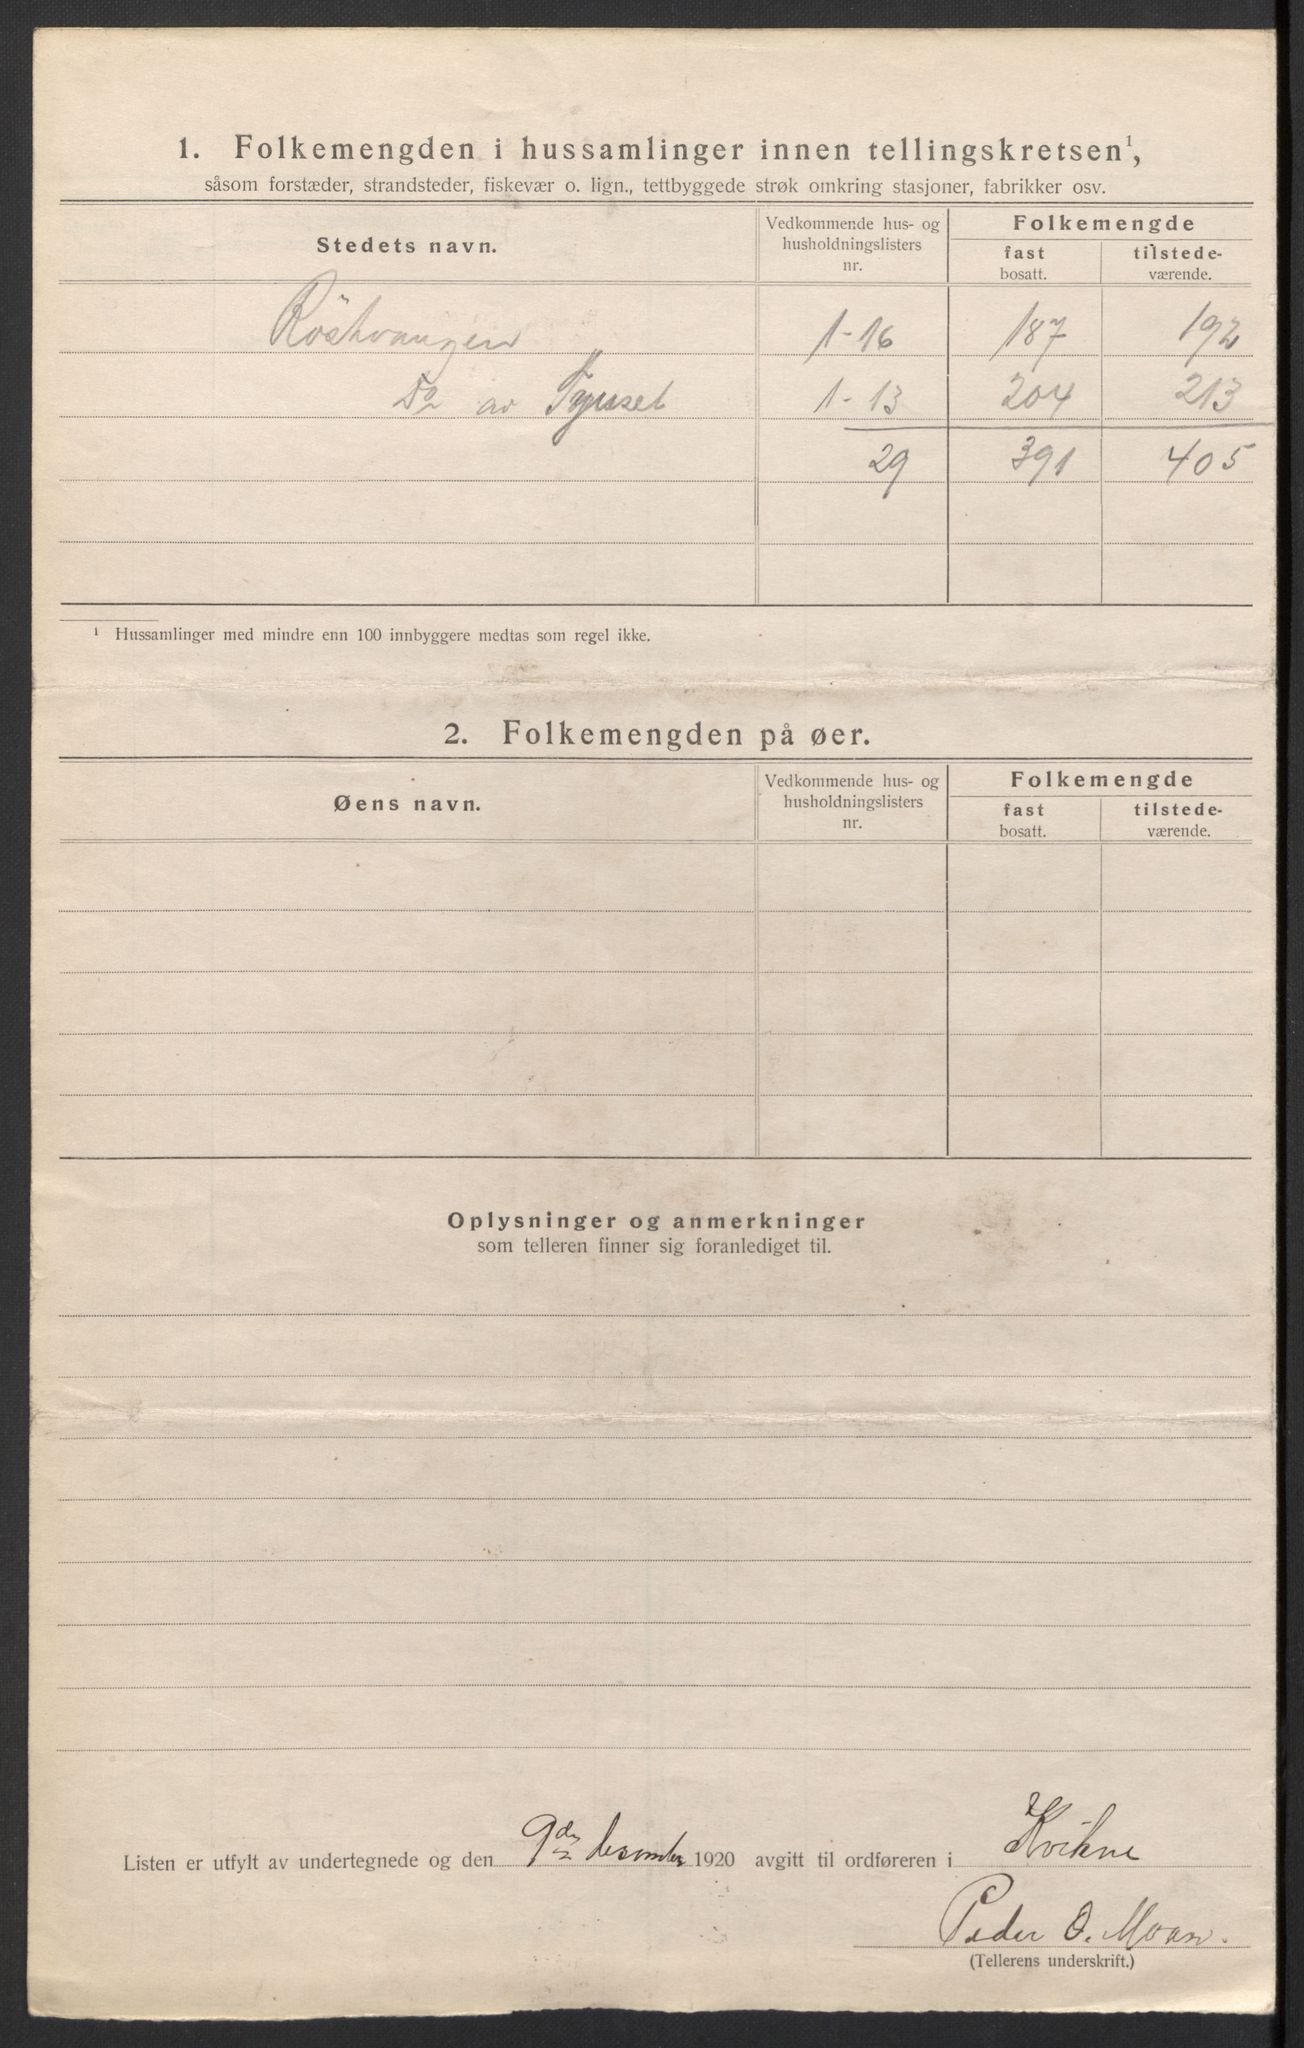 1. Folkemengden i hussamlinger innen tellingskretsen¹,
såsom forstæder, strandsteder, fiskevær o. lign., tettbyggede strøk omkring stasjoner, fabrikker osv.
Stedets navn.
Vedkommende hus- og
husholdningslisters
nr.
Folkemengde
fast
bosatt.
tilstede-
værende.
Röstvangen 1-16 187 192
Do av Tynset 1-13 204 213
29 391 405
¹ Hussamlinger med mindre enn 100 innbyggere medtas som regel ikke.
2. Folkemengden på øer.
Øens navn.
Vedkommende hus- og
husholdningslisters
nr.
Folkemengde
fast
bosatt.
tilstede-
værende.
Oplysninger og anmerkninger
som telleren finner sig foranlediget til.
Listen er utfylt av undertegnede og den 9de desember 1920 avgitt til ordføreren i Kvikne
Peder O. Moan.
(Tellerens underskrift.)